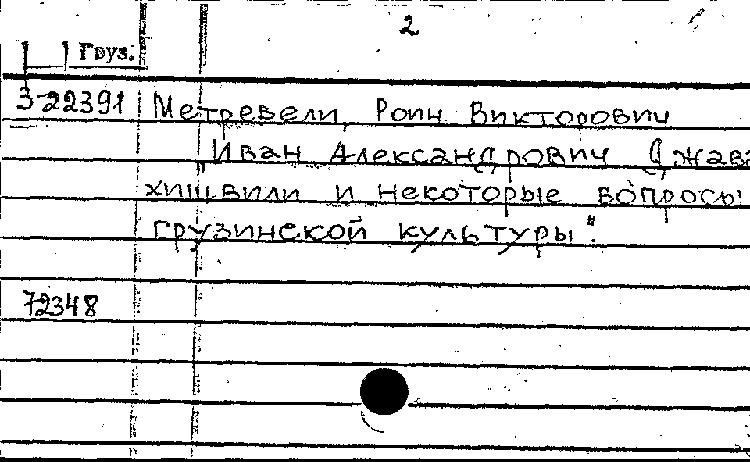 2
Груз.
3-22391 Метревели, Роин Викторович
„Иван Александрович Джава
хишвили и некоторые вопросы
грузинской культуры".
72348